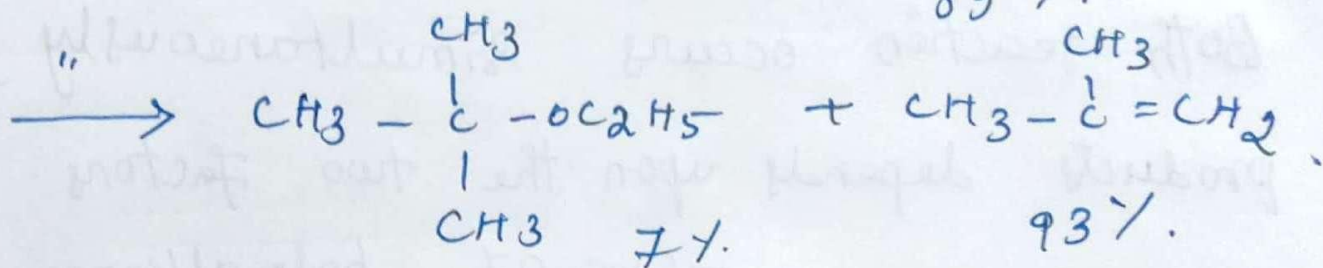 CH3 CH3
" → CH3 - C - OC2H5 + CH3 - C = CH2.
CH3 7%. 93%.